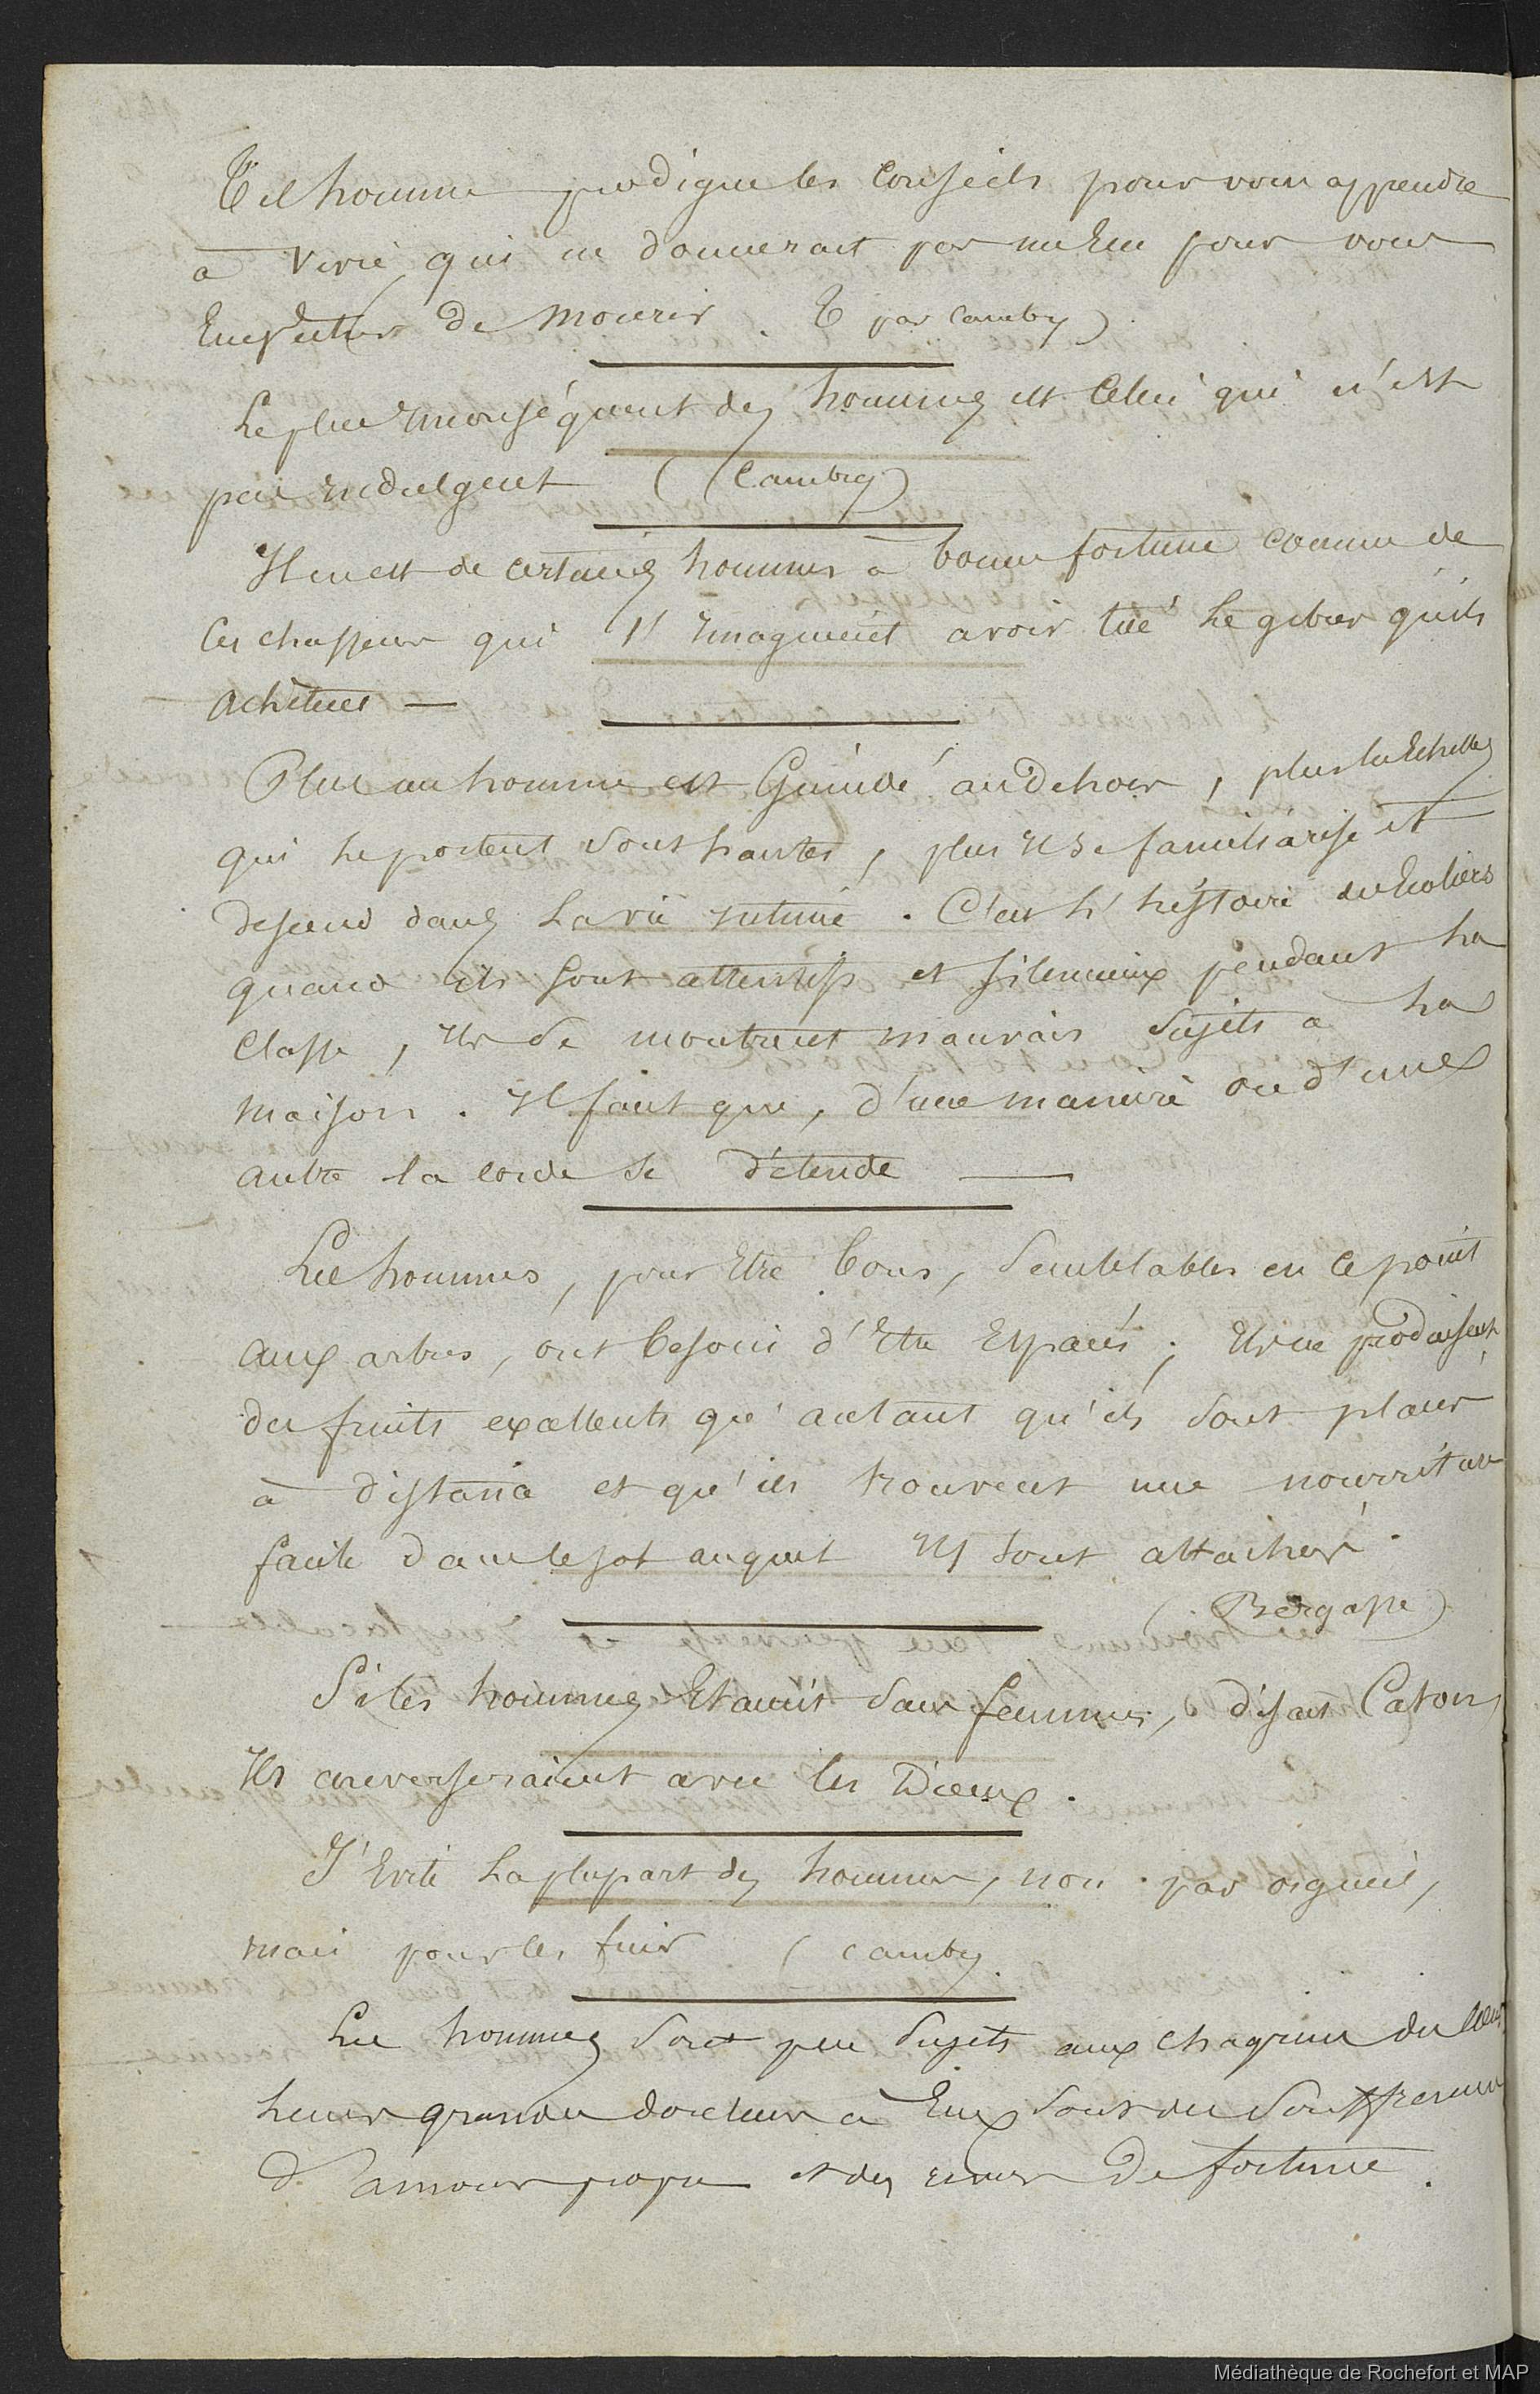 Tel homme prodigue les conseils pour vous apprendre
à vivre, qui ne donnerait pas un Ecu pour vous
Empêcher de mourir. (par Cambry)
Le plus inconséquent des hommes est celui qui n'est
pas indulgent (Cambry)
Il en est de certains hommes à bonne fortune comme de
ces chasseurs qui s'imaginent avoir tué le gibier qu'ils
achètent —
Plus un homme est Guindé au dehors, plus les Echelles
qui le portent sont hautes, plus il se familiarise et
descend dans la vie intime. C'est l'histoire des Ecoliers
quand ils sont attentifs et silencieux pendant la
classe, ils se montrent mauvais sujets à la
maison. Il faut que, d'une manière ou d'une
autre la corde se détende —
Les hommes, pour Etre bons, semblables en ce point
aux arbres, ont besoin d'Etre Espacés; Ils ne produisent
des fruits excellents qu'autant qu'ils sont placés
à distance et qu'ils trouvent une nourriture
facile dans le sol auquel ils sont attachés.
(Bergasse)
Si les hommes Etaient sans femmes, disait Caton,
Ils converseraient avec les Dieux.
J'Evite la plupart des hommes, non par orgueil,
mais pour les fuir (Cambry.
Les hommes sont peu sujets aux chagrins du Coeur
leurs grandes douleurs à Eux sont des souffrances
d'amour propre et des revers de fortune.
Médiathèque de Rochefort et MAP